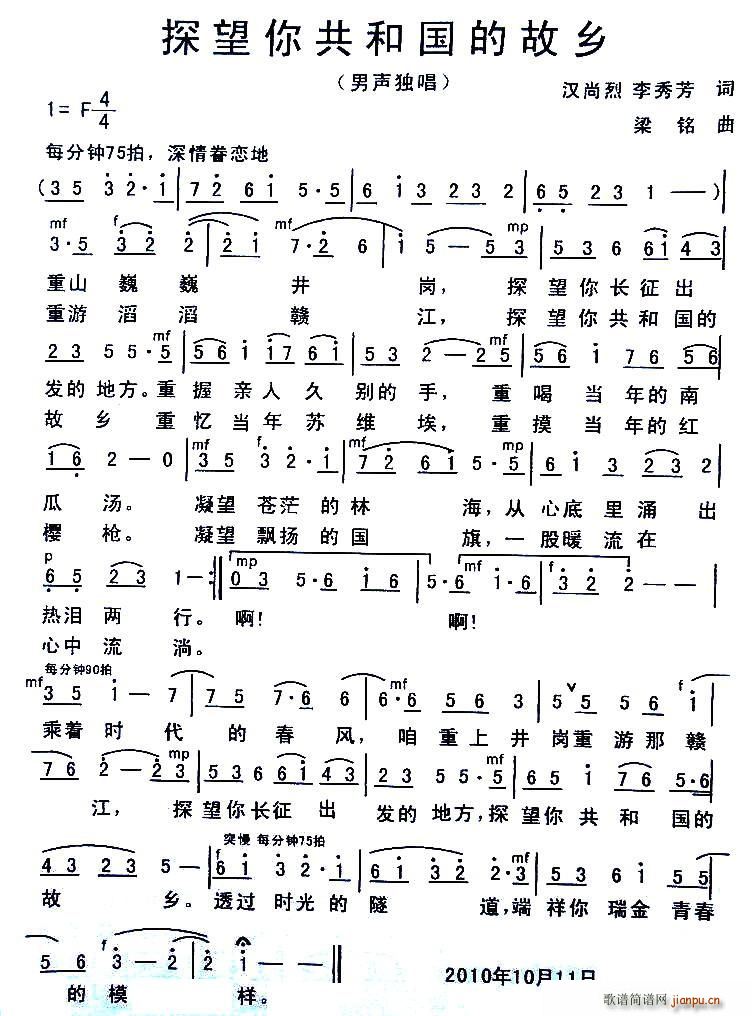 探望你共和国的故乡
（男声独唱）
汉尚烈 李秀芳 词
1= F 4/4
梁 铭 曲
每分钟75拍，深情眷恋地
(3 5 3 2·1 | 7 2 6 1 5·5 | 6 1 3 2 3 2 | 6 5 2 3 1 — —)
mf f mf mp
3·5 3 2 | 2 2 1 7·2 6 | 5 — 5 3 | 5 3 6 6 1 4 3
重山巍巍 井 岗， 探望你长征出
重游滔滔 赣 江， 探望你共和国的
mf mf
2 3 5 5·5 | 5 6 1 1 7 6 1 | 5 3 2 — 2 5 | 5 6 1 7 6 5 6
发的地方。重握亲人久别的手， 重喝当年的南
故乡 重忆当年苏维埃， 重摸当年的红
mf f mf mp
1 6 2 — 0 | 3 5 3 2·1 | 7 2 6 1 5·5 | 6 1 3 2 3 2
瓜汤。凝望苍茫的林 海，从心底里涌出
樱枪。凝望飘扬的国 旗，一股暖流在
p mp mf f
6 5 2 3 1 — :| 0 3 5·6 1 6 | 5·6 5·6 1·6 | 3 2 2 — —
热泪两 行。啊！ 啊！
心中流 淌。
每分钟90拍
mf mf f
3 5 1 — 7 | 7 5 7·6 | 6 — 6·6 | 5 5 5 6 1
乘着时 代 的春 风，咱重上井岗重游那赣
mp
7 6 2 — 2 3 | 5 3 6 6 1 4 3 | 2 3 5 5 3 | 5 6 1 7 6 5·6
江， 探望你长征出 发的地方，探望你共和国的
突慢 每分钟75拍
f f mf
4 3 2 3 5 — | 6 1 3 2·1 | 6 1 3 2 2·3 | 5 3 6 1 5 5
故 乡。透过时光的隧 道，端祥你瑞金青春
f
5 6 3 — 2 | 2 1 — ‖
的模 样。
2010年10月11日
歌谱简谱网 jianpu.cn